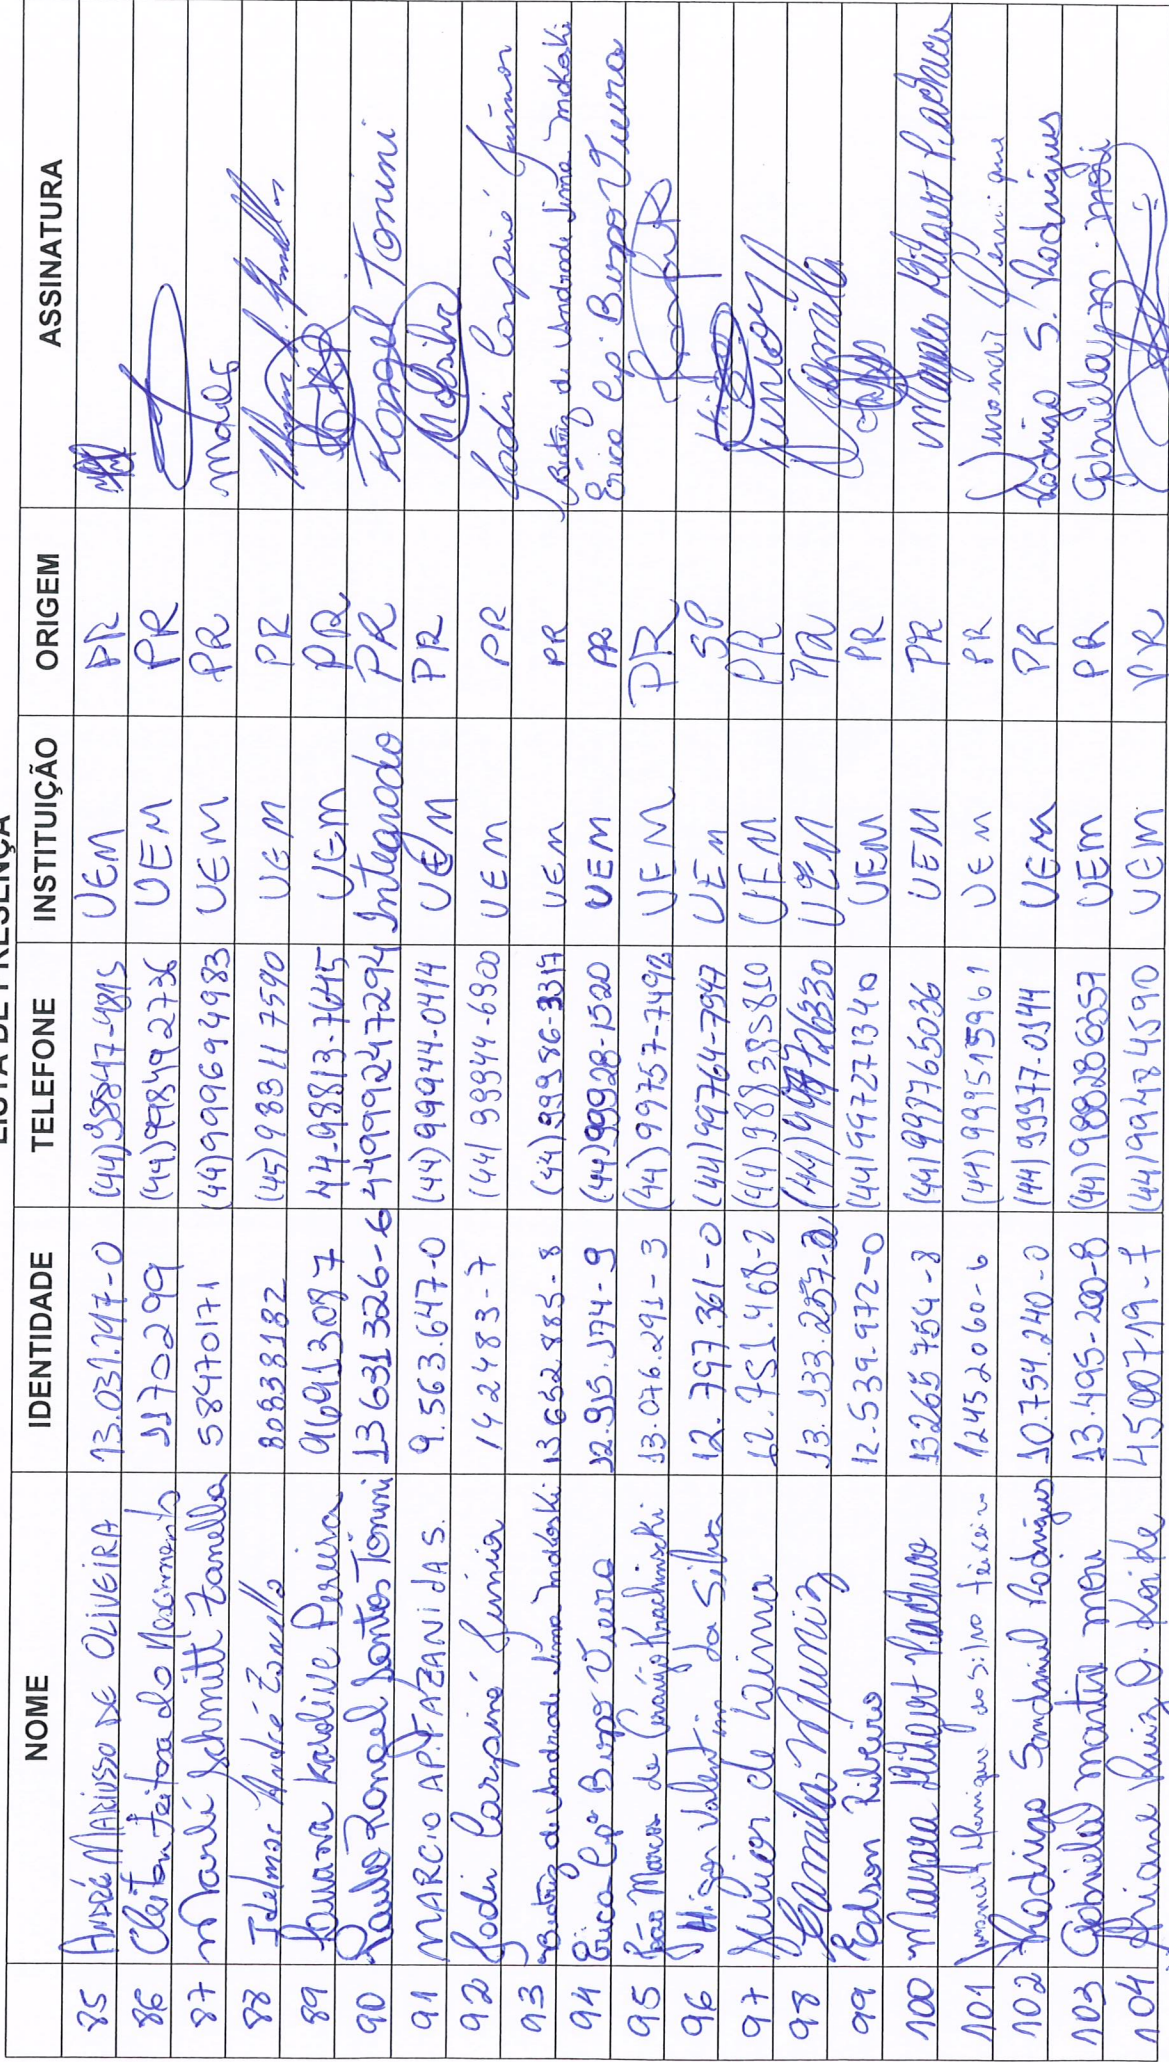 LISTA DE PRESENÇA
NOME IDENTIDADE TELEFONE INSTITUIÇÃO ORIGEM ASSINATURA
85 ANDRÉ MARIUSSO DE OLIVEIRA 13.031.797-0 (44) 98847-4815 UEM PR
86 Cleiton Feitosa do Nascimento 1170299 (44) 998492736 UEM PR
87 Marlé Schmitt Zanella 58470171 (44) 999694983 UEM PR
88 Idelmar André Zanella 80838182 (45) 983117590 UEM PR
89 Karoline Pereira 96913087 44-98813-7645 UEM PR
90 Paulo Rangel Santos Tonini 13631326-6 44999247294 Integrado PR Rangel Tonini
91 MARCIO AP. FAZANI DA S. 9.563.647-0 (44) 99944-0414 UEM PR
92 Jodir Carpiné Júnior 142483-7 (44) 99944-6900 UEM PR Jodir Carpiné Júnior
93 Beatriz de Andrade Lima Makoski 13652.885-8 (44) 99986-3317 UEM PR Beatriz de Andrade Lima Makoski
94 Erica Bispo Vieira 12.915.174-9 (44) 99928-1520 UEM PR Erica Bispo Vieira
95 João Marcos de Araújo Krachinscki 13.076.291-3 (44) 99757-7492 UEM PR
96 Higor Valentim da Silva 12.797.361-0 (44) 99764-7947 UEM SP Higor
97 Junior de Lima 12.751.468-2 (44) 988385810 UEM PR Junior
98 Camila Muniz (44) UEM PR Camila
99 Edson Ribeiro 12.539.972-0 (44) 997271340 UEM PR
100 Mayara 13265754-8 (44) 997765036 UEM PR Mayara
101 Henrique da Silva Teixeira 12452060-6 (44) 999515961 UEM PR Henrique
102 Rodrigo Sandaniel Rodrigues 10.754.240-0 (44) 99977-0344 UEM PR Rodrigo S. Rodrigues
103 Gabriela Martin Mori 13.495-200-8 (44) 988286357 UEM PR Gabriela M. Mori
104 Ariane Koike 4500719-7 (44) 999484590 UEM PR